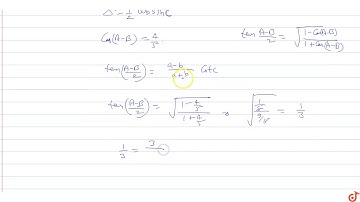 Δ = 1/2 ab sin C
Cos(A-B) = 4/5
tan (A-B)/2 = √(1-Cos(A-B) / 1+Cos(A-B))
tan(A-B/2) = a-b/a+b Cot C
tan(A-B/2) = √(1-4/5 / 1+4/5) √(1/5 / 9/5) = 1/3
1/3 = 3